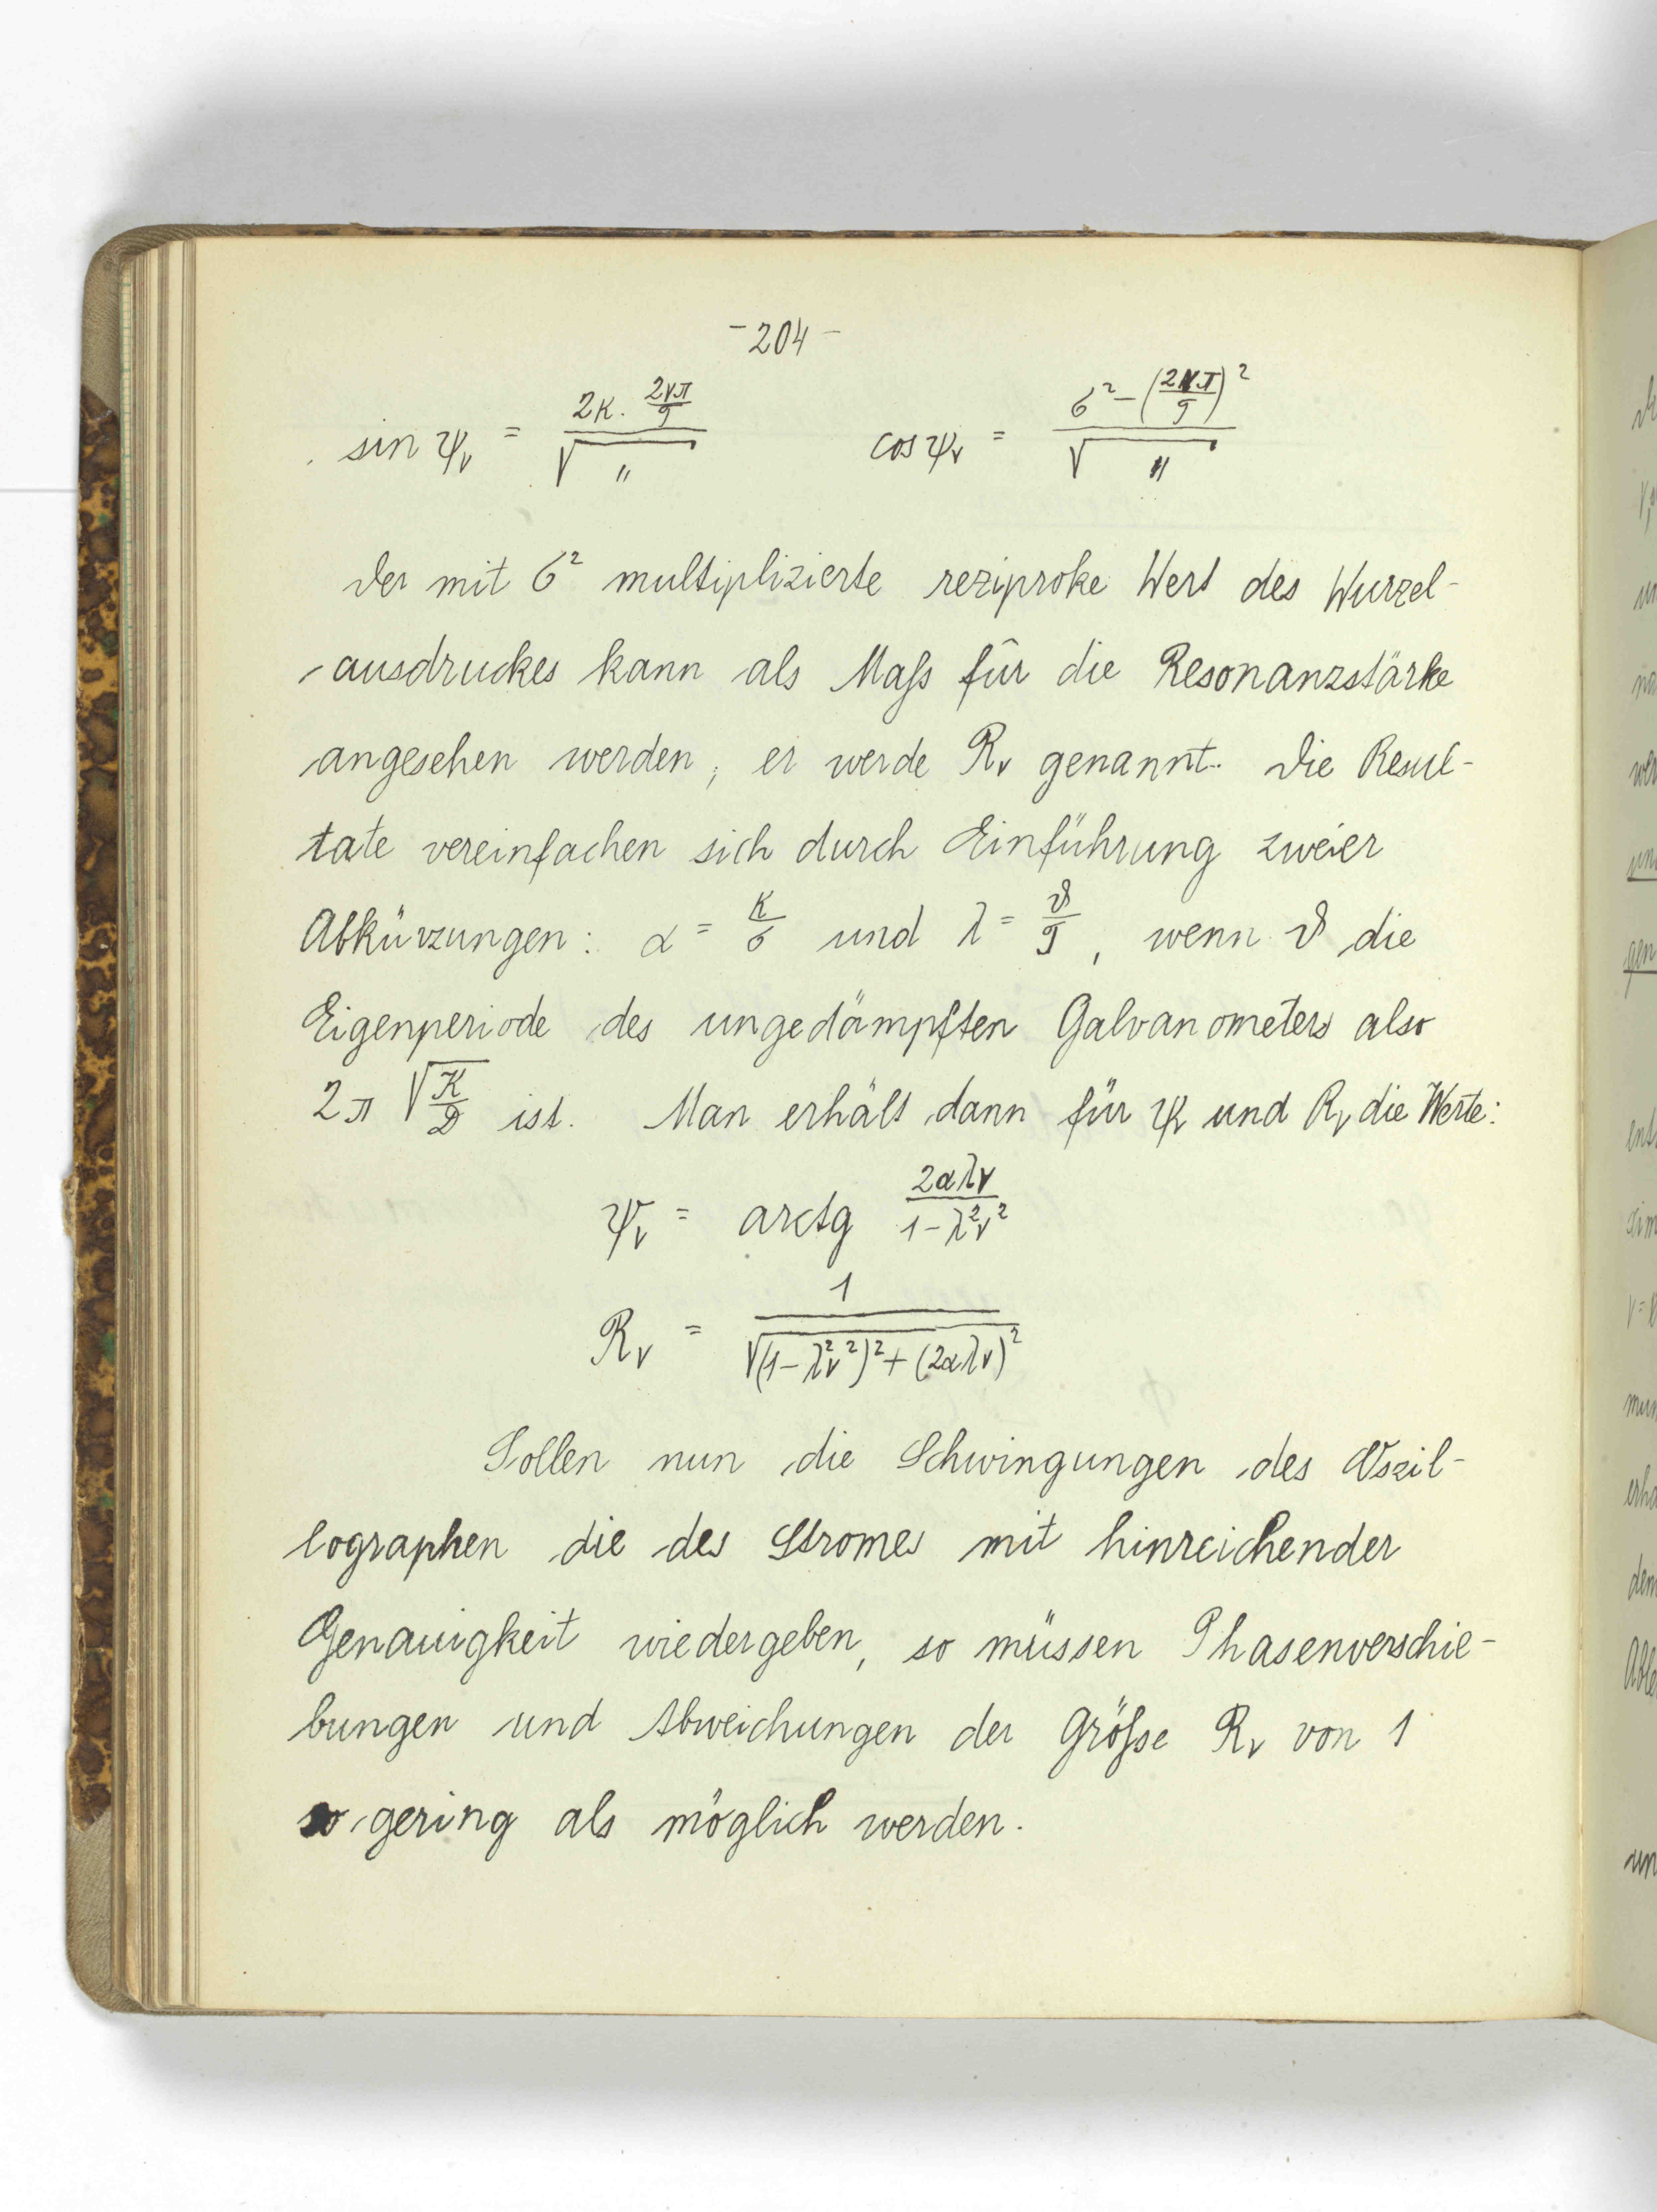 -204-
sin ψ_ν = (2κ · 2νπ/T) / √ " cos ψ_ν = (σ² - (2νπ/T)²) / √ "
Der mit σ² multiplizierte reziproke Wert des Wurzel-
ausdruckes kann als Maß für die Resonanzstärke
angesehen werden, er werde R_ν genannt. Die Resul-
tate vereinfachen sich durch Einführung zweier
Abkürzungen: α = κ/σ und λ = ϑ/T, wenn ϑ die
Eigenperiode des ungedämpften Galvanometers also
2π √(K/D) ist. Man erhält dann für ψ_ν und R_ν die Werte:
ψ_ν = arctg 2αλν / (1-λ²ν²)
R_ν = 1 / √((1-λ²ν²)² + (2αλν)²)
Sollen nun die Schwingungen des Oszil-
lographen die des Stromes mit hinreichender
Genauigkeit wiedergeben, so müssen Phasenverschie-
bungen und Abweichungen der Größe R_ν von 1
so gering als möglich werden.